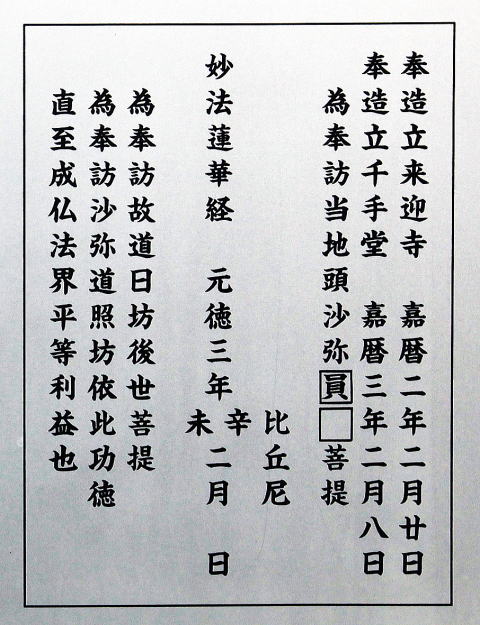 奉造立来迎寺　嘉暦二年二月廿日
奉造立千手堂　嘉暦三年二月八日
為奉訪当地頭沙弥員□菩提
比丘尼
妙法蓮華経　元徳三年辛未二月　日
為奉訪故道日坊後世菩提
為奉訪沙弥道照坊依此功徳
直至成仏法界平等利益也